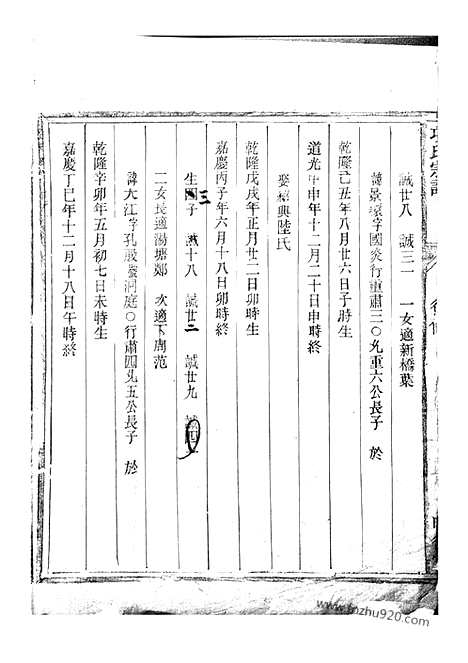 誠廿八 誠三一 一女適新橋葉
諱景 字國炎行重肅三〇九重六公長子 於
乾隆己丑年八月廿六日子時生
道光甲申年十二月二十日申時終
娶 典陸氏
嘉慶丙子年六月十八日卯時終
乾隆戊戌年正月廿二日卯時生
生 子 三 誠十八 誠廿二 誠廿九
二女長適湯塘鄭 次適下周范
諱大江字孔殷 洞庭〇行肅四 五公長子 於
乾隆辛卯年五月初七日未時生
嘉慶丁巳年十二月十八日午時終
www.jinzhu920.com